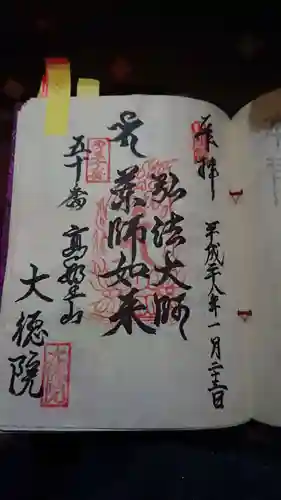 奉拝
平成廿八年一月二十三日
弘法大師
薬師如来
五十番 高野山
大徳院